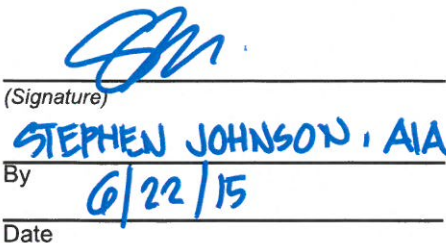 (Signature)
STEPHEN JOHNSON, AIA
By
6/22/15
Date